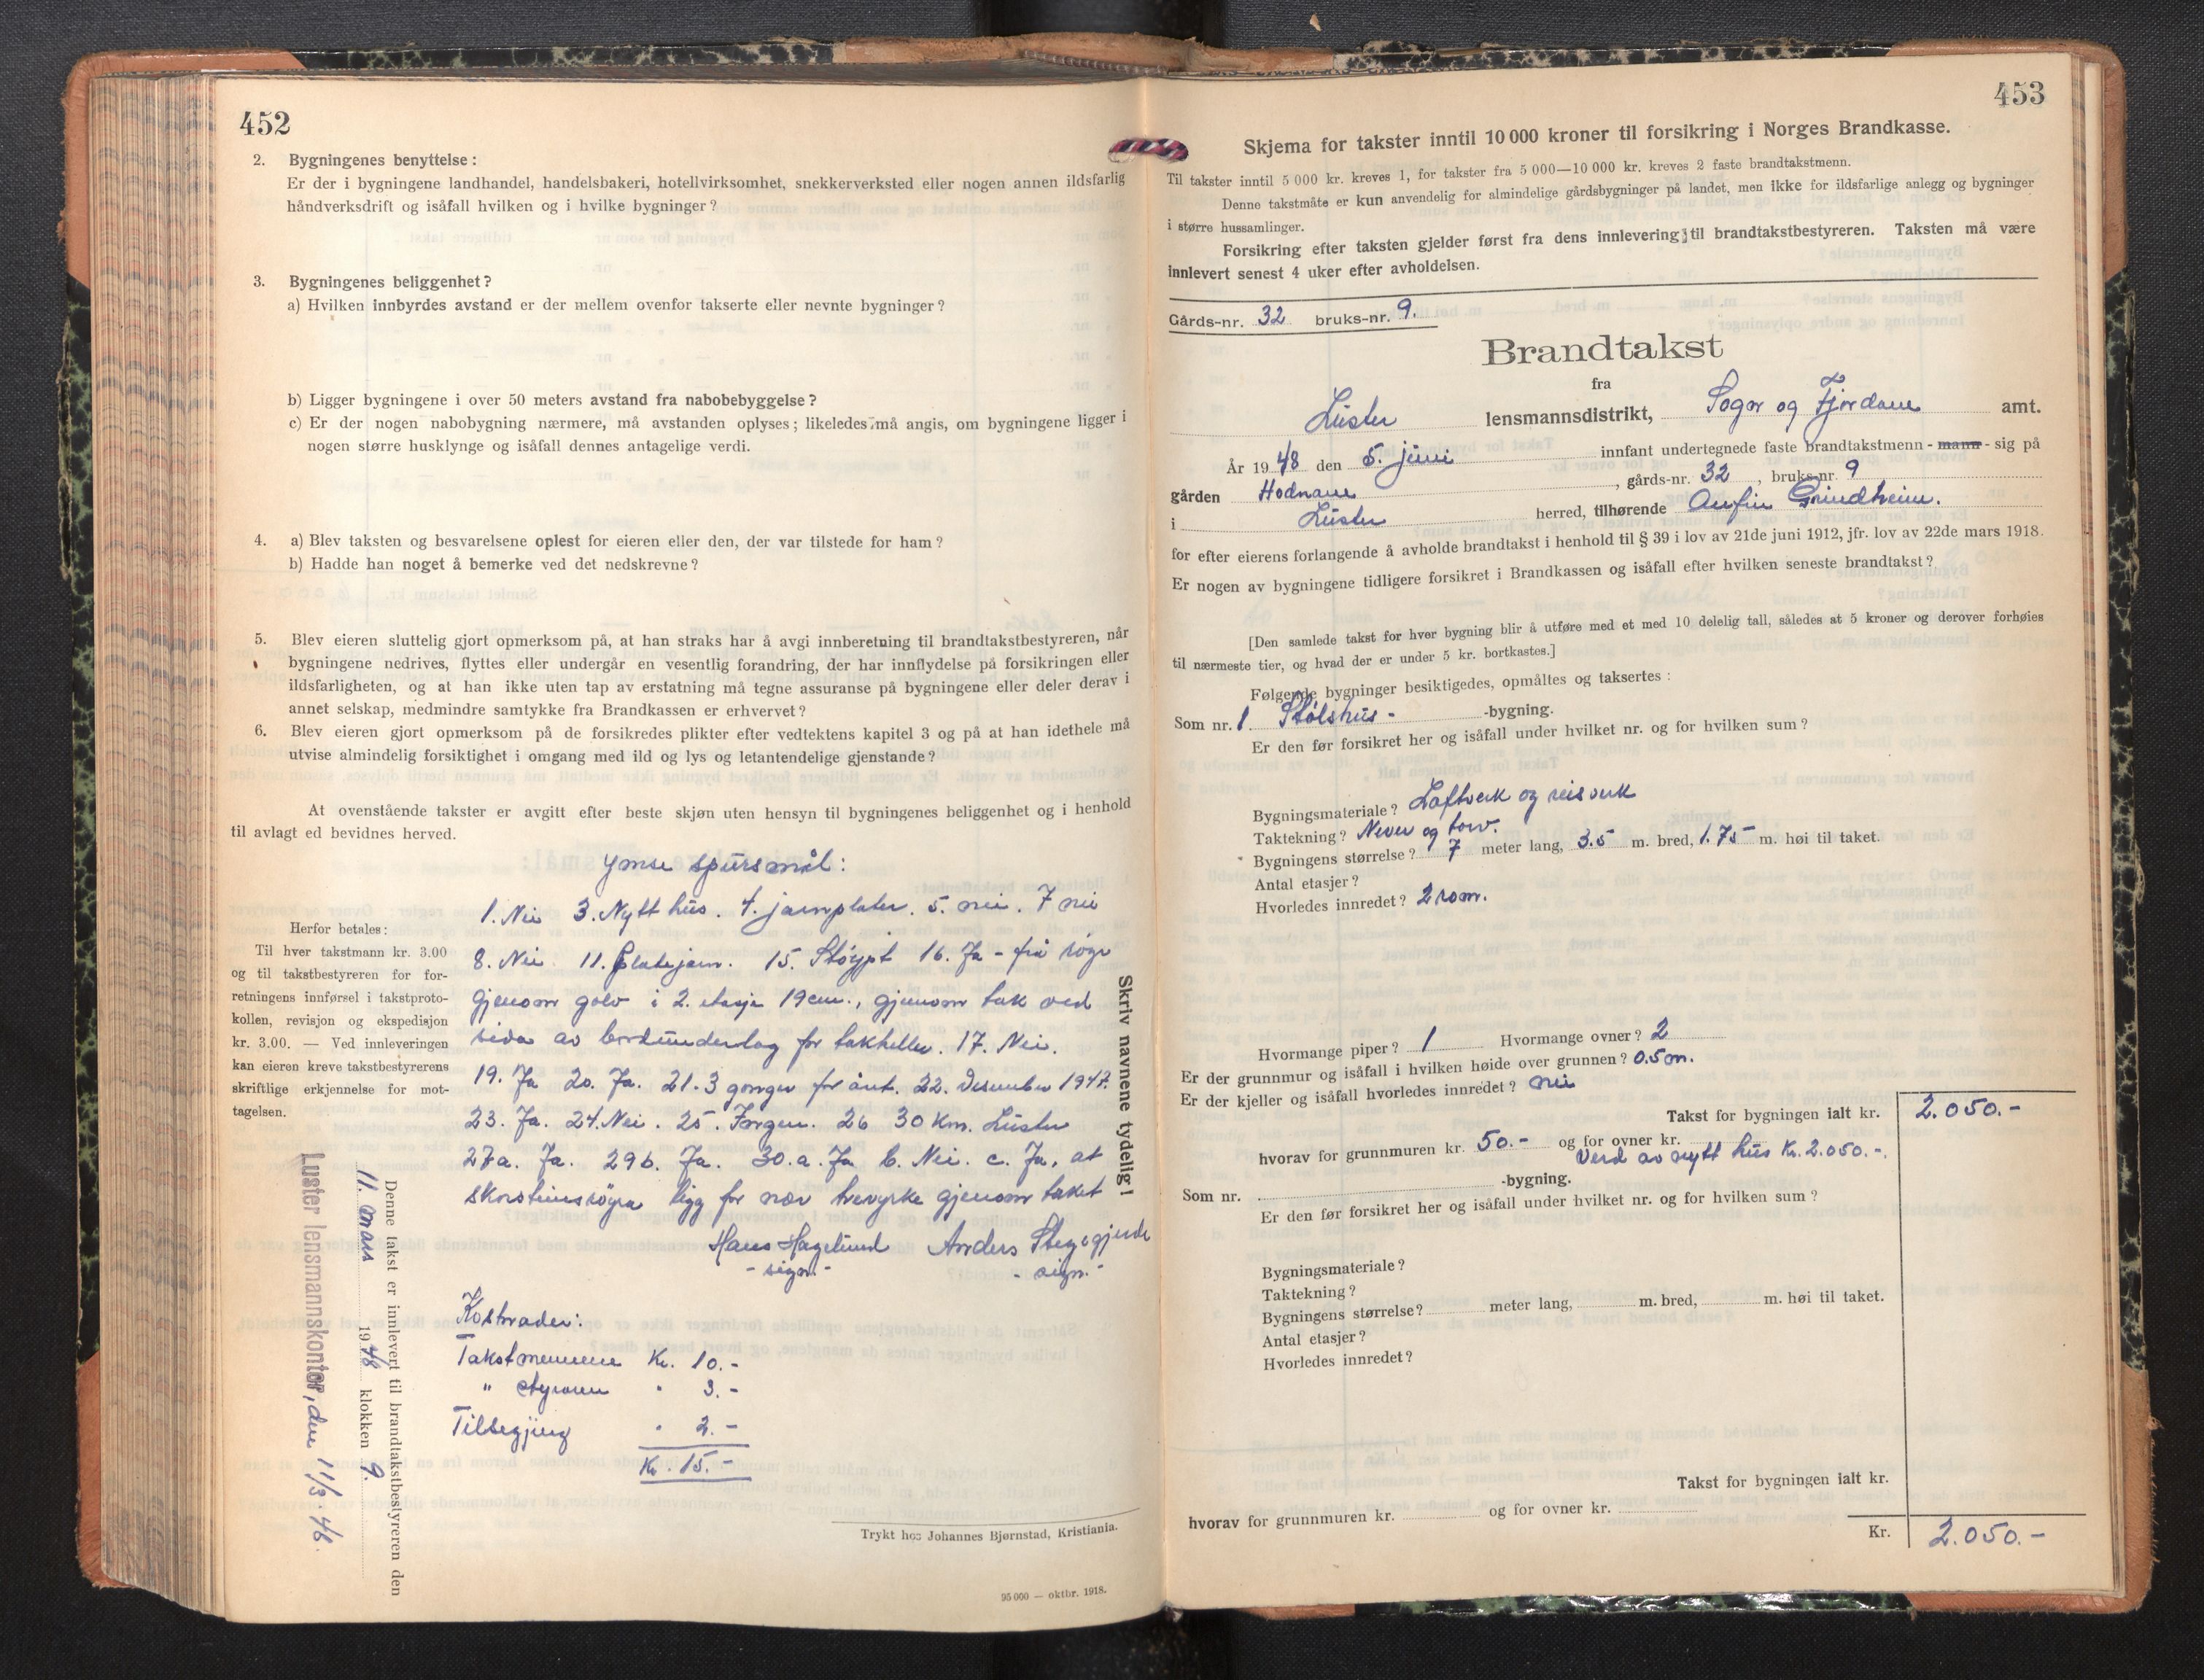 452
2. Bygningenes benyttelse:
Er der i bygningene landhandel, handelsbakeri, hotellvirksomhet, snekkerverksted eller nogen annen ildsfarlig
håndverksdrift og isåfall hvilken og i hvilke bygninger?
3. Bygningenes beliggenhet?
a) Hvilken innbyrdes avstand er der mellem ovenfor takserte eller nevnte bygninger?
b) Ligger bygningene i over 50 meters avstand fra nabobebyggelse?
c) Er der nogen nabobygning nærmere, må avstanden oplyses; likeledes må angis, om bygningene ligger i
nogen større husklynge og isåfall dennes antagelige verdi.
4. a) Blev taksten og besvarelsene oplest for eieren eller den, der var tilstede for ham?
b) Hadde han noget å bemerke ved det nedskrevne?
5. Blev eieren sluttelig gjort opmerksom på, at han straks har å avgi innberetning til brandtakstbestyreren, når
bygningene nedrives, flyttes eller undergår en vesentlig forandring, der har innflydelse på forsikringen eller
ildsfarligheten, og at han ikke uten tap av erstatning må tegne assuranse på bygningene eller deler derav i
annet selskap, medmindre samtykke fra Brandkassen er erhvervet?
6. Blev eieren gjort opmerksom på de forsikredes plikter efter vedtektens kapitel 3 og på at han idethele må
utvise almindelig forsiktighet i omgang med ild og lys og letantendelige gjenstande?
At ovenstående takster er avgitt efter beste skjøn uten hensyn til bygningenes beliggenhet og i henhold
til avlagt ed bevidnes herved.
Ymse spursmål:
1. Nei 3. Nytt hus. 4. jarnplater. 5. nei. 7 nei
8. Nei 11. Platejarn. 15. Støypt 16. Ja - frå røyr
gjenom golv i 2. etasje 19 cm., gjenom tak ved
sida av bordunderlag for takheller. 17. Nei.
19. Ja 20. Ja. 21. 3 gonger for året. 22. Desember 1947.
23. Ja. 24. Nei. 25. Torgeir. 26 30 km. Luster
27a. Ja. 29b. Ja. 30.a. Ja b. Nei. c. Ja, at
skorsteinsrøyra ligg for nær treyrke gjenom taket
Hans Hagelund Anders Stegegjerde
- sign. - - sign. -
Herfor betales:
Til hver takstmann kr. 3.00
og til takstbestyreren for for-
retningens innførsel i takstproto-
kollen, revisjon og ekspedisjon
kr. 3.00. — Ved innleveringen
kan eieren kreve takstbestyrerens
skriftlige erkjennelse for mot-
tagelsen.
Skriv navnene tydelig!
Kostnader:
Takstmennene Kr. 10.-
" styraren " 3.-
Tillegging " 2.-
Kr. 15.-
Denne takst er innlevert til brandtakstbestyreren den
11. mars 1948 klokken 9.
Luster lensmannskontor, den 11/3. 48.
Trykt hos Johannes Bjørnstad, Kristiania.
95 000 — oktbr. 1918.
453
Skjema for takster inntil 10 000 kroner til forsikring i Norges Brandkasse.
Til takster inntil 5 000 kr. kreves 1, for takster fra 5 000—10 000 kr. kreves 2 faste brandtakstmenn.
Denne takstmåte er kun anvendelig for almindelige gårdsbygninger på landet, men ikke for ildsfarlige anlegg og bygninger
i større hussamlinger.
Forsikring efter taksten gjelder først fra dens innlevering til brandtakstbestyreren. Taksten må være
innlevert senest 4 uker efter avholdelsen.
Gårds-nr. 32 bruks-nr. 9.
Brandtakst
fra
Luster lensmannsdistrikt, Sogn og Fjordane amt.
År 1948 den 5. juni innfant undertegnede faste brandtakstmenn - mann - sig på
gården Hodnane, gårds-nr. 32, bruks-nr. 9
i Luster herred, tilhørende Anfin Grindheim.
for efter eierens forlangende å avholde brandtakst i henhold til § 39 i lov av 21de juni 1912, jfr. lov av 22de mars 1918.
Er nogen av bygningene tidligere forsikret i Brandkassen og isåfall efter hvilken seneste brandtakst?
[Den samlede takst for hver bygning blir å utføre med et med 10 delelig tall, således at 5 kroner og derover forhøies
til nærmeste tier, og hvad der er under 5 kr. bortkastes.]
Følgende bygninger besiktigedes, opmåltes og taksertes:
Som nr. 1 Stølshus- -bygning.
Er den før forsikret her og isåfall under hvilket nr. og for hvilken sum?
Bygningsmateriale? Laftverk og reisverk
Taktekning? Never og torv.
Bygningens størrelse? 7 meter lang, 3.5 m. bred, 1.75 m. høi til taket.
Antal etasjer?
Hvorledes innredet? 2 rom.
Hvormange piper? 1 Hvormange ovner? 2
Er der grunnmur og isåfall i hvilken høide over grunnen? 0.5 m.
Er der kjeller og isåfall hvorledes innredet? nei
Takst for bygningen ialt kr. 2.050.-
hvorav for grunnmuren kr. 50.- og for ovner kr.
Verd av nytt hus Kr. 2.050.-.
Som nr. -bygning.
Er den før forsikret her og isåfall under hvilket nr. og for hvilken sum?
Bygningsmateriale?
Taktekning?
Bygningens størrelse? meter lang, m. bred, m. høi til taket.
Antal etasjer?
Hvorledes innredet?
Takst for bygningen ialt kr.
hvorav for grunnmuren kr. og for ovner kr.
Kr. 2.050.-